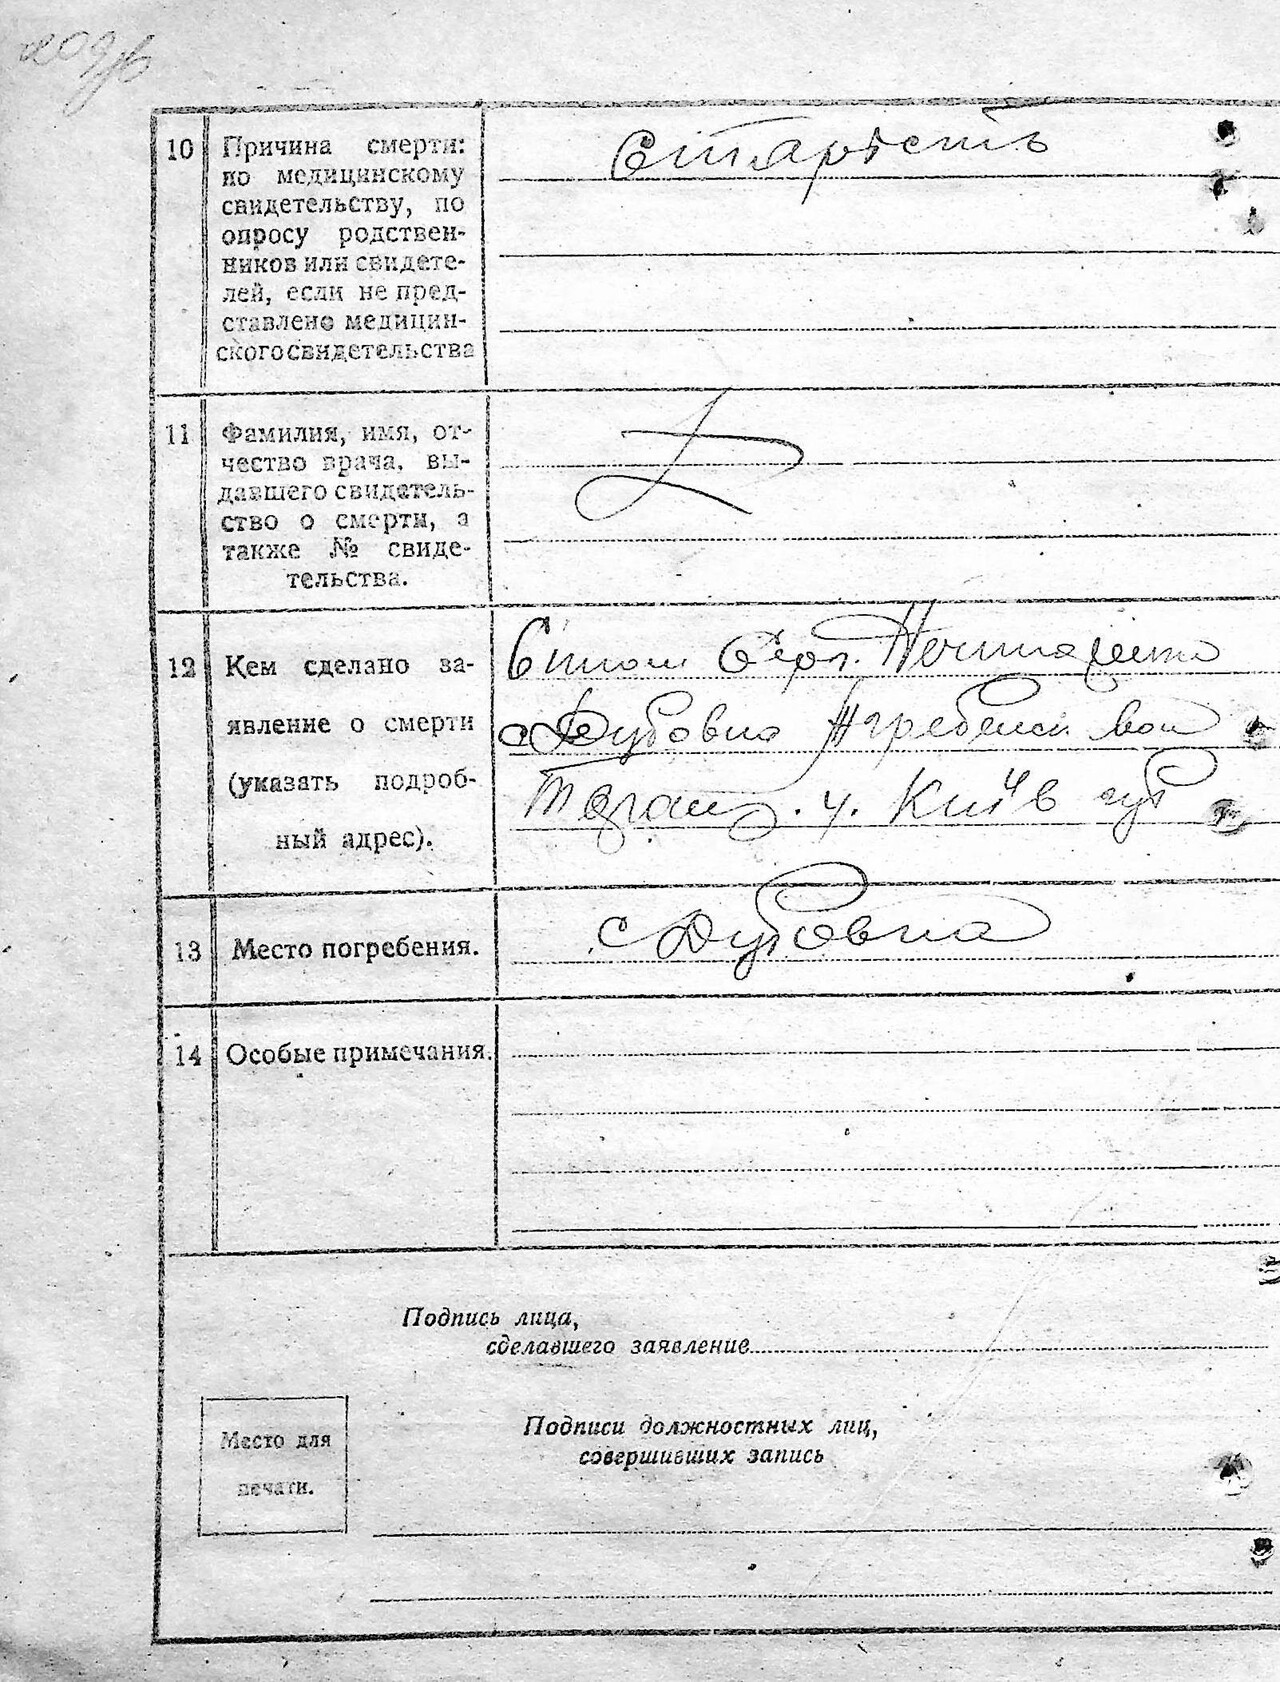 10 Причина смерти:
по медицинскому
свидетельству, по
опросу родствен-
ников или свидете-
лей, если не пред-
ставлено медицин-
ского свидетельства
Старость
11 Фамилия, имя, от-
чество врача, вы-
давшего свидетель-
ство о смерти, а
также № свиде-
тельства.
12 Кем сделано за-
явление о смерти
(указать подроб-
ный адрес).
с Дубовка
Таращ. у. Київ губ
13 Место погребения.
с Дубовка
14 Особые примечания.
Подпись лица,
сделавшего заявление
Подписи должностных лиц,
совершивших запись
Место для
печати.